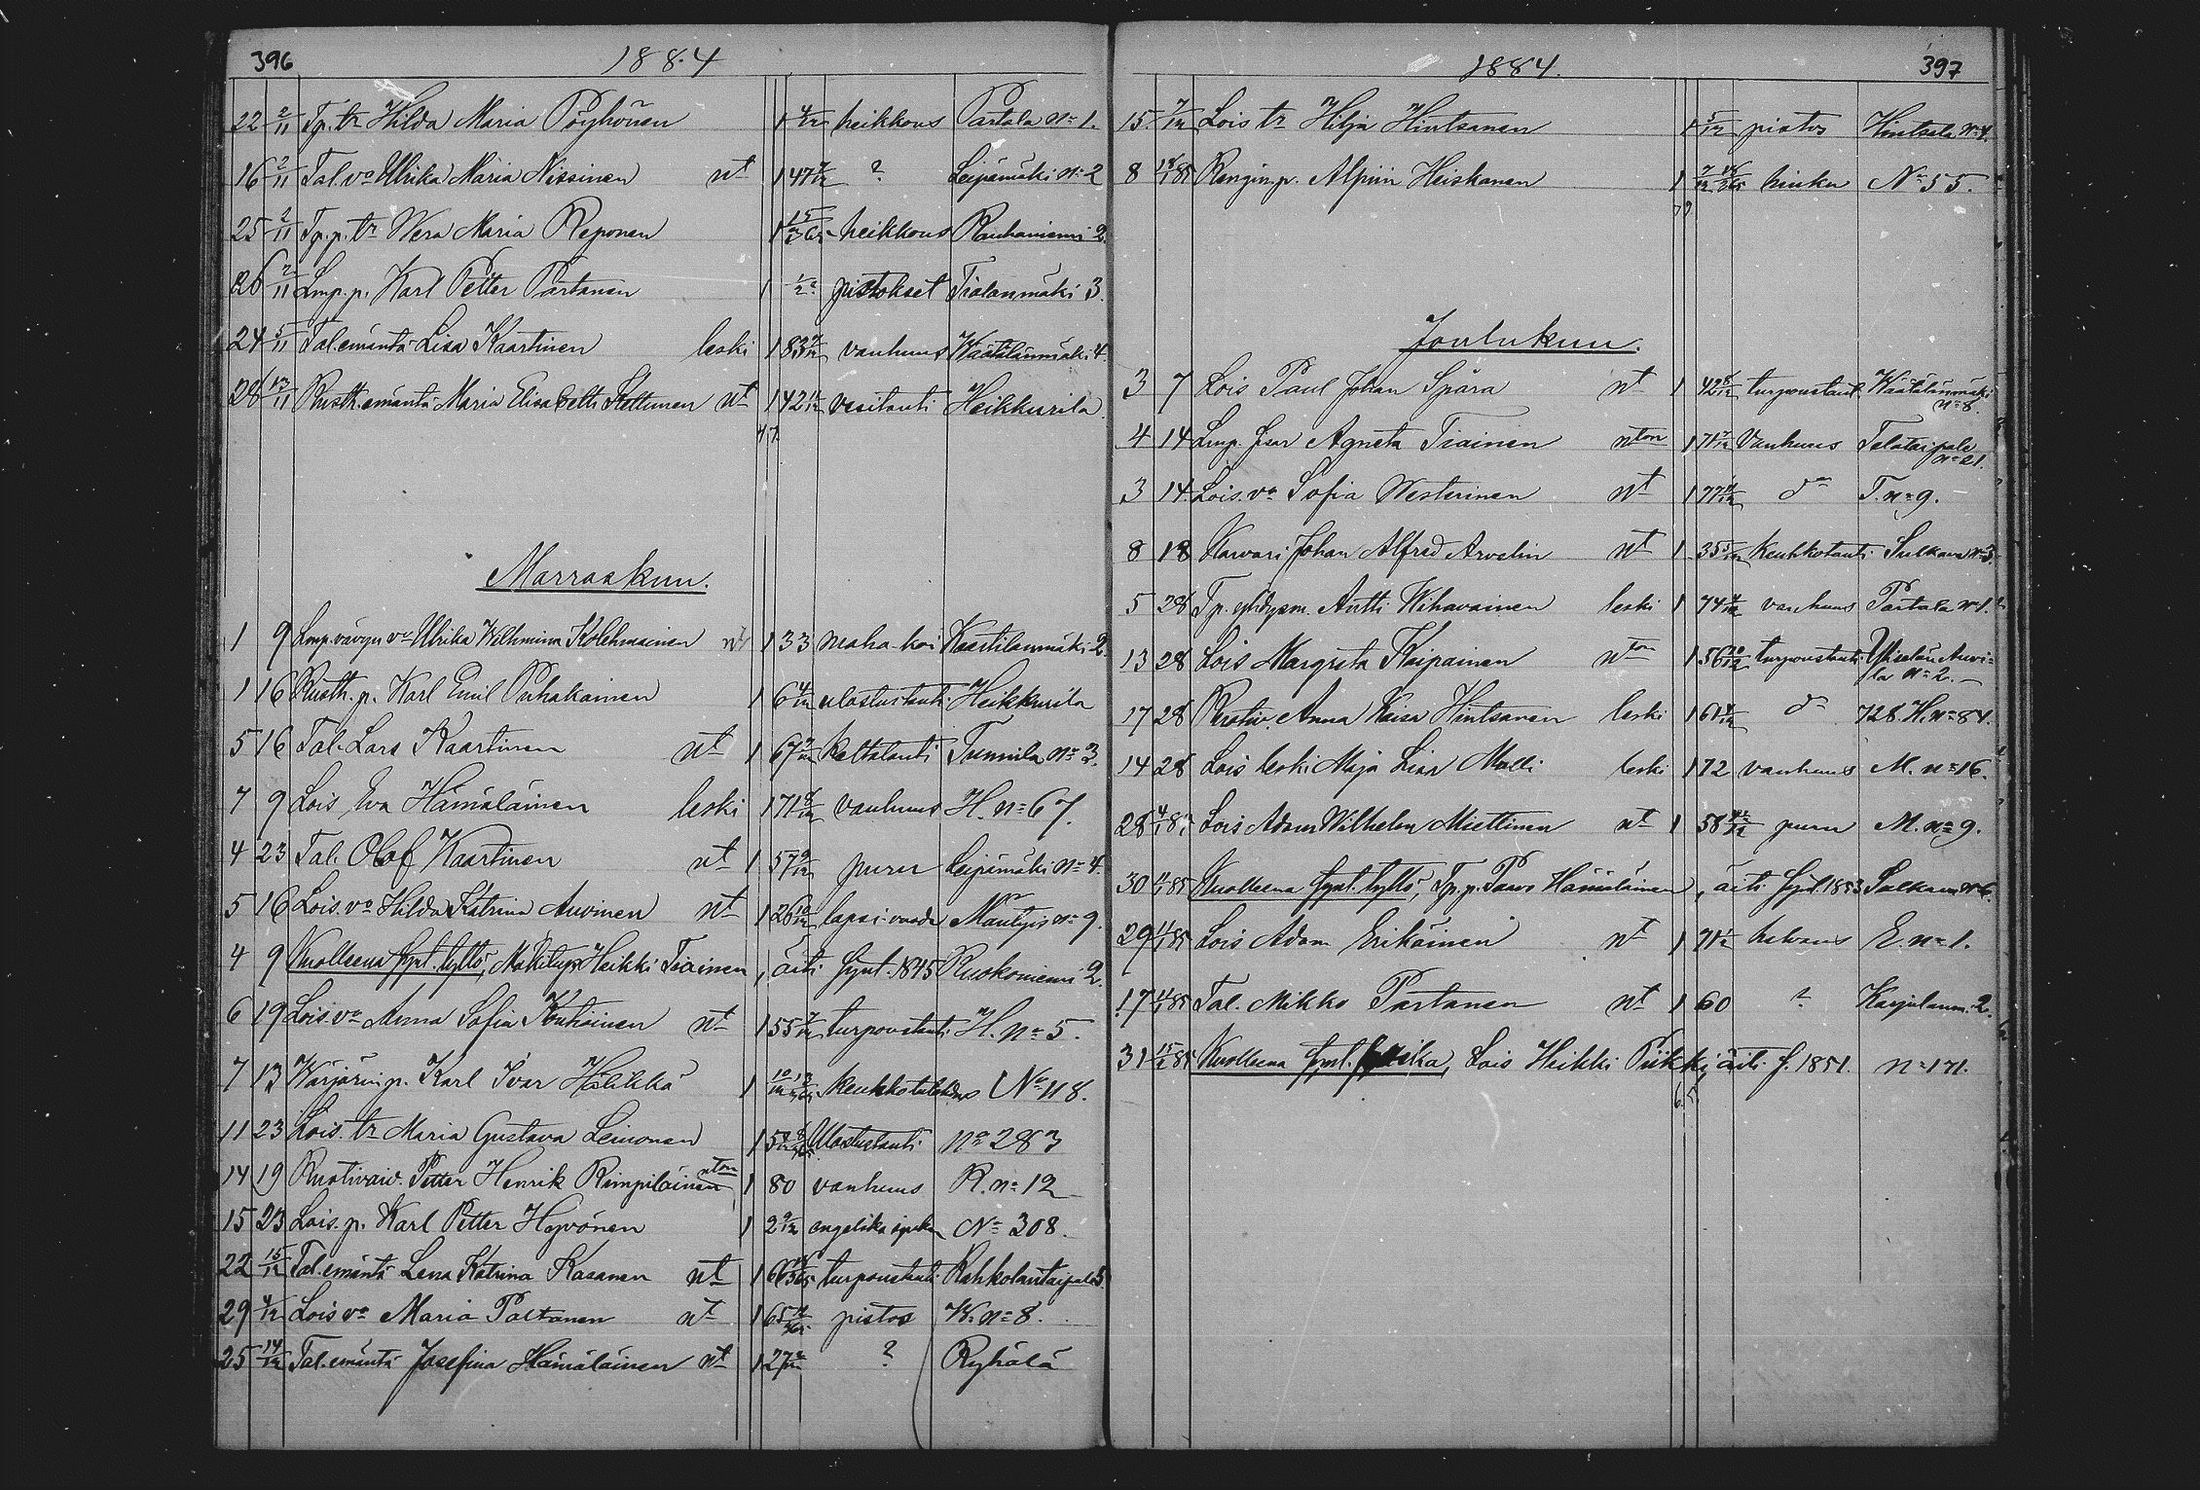 396 1884
22 2/11 Tp. tr Hilda Maria Pöyhönen 1 4/12 heikkous Partala No 1.
16 2/11 Tal. vo Ulrika Maria Nissinen nt 1 47 ? Leipämäki No 2
25 2/11 Tp. p. tr Wera Maria Reponen 1 15/365 heikkous Rauhaniemi 2.
26 2/11 Lmp. p. Karl Petter Partanen 1 1/2 pistokset Tialanmäki 3.
24 5/11 Tal. emäntä Lisa Kaartinen leski 1 83 vanhuus Wäätälänmäki 4.
28 13/11 Rusth. emäntä Maria Elisabeth Kettunen nt 1 42 vesitauti Heikkurila.
Marraskuu.
1 9 Lmp. vävyn vo Ulrika Wilhmina Kolehmainen nt 1 33 maha-hai Kaartilanmäki 2.
1 16 Rusth. p. Karl Emil Puhakainen 1 6 4/12 ulostustauti Heikkurila
5 16 Tal. Lars Kaartinen nt 1 67 keltatauti Tunnila No 3.
7 9 Lois Eva Hämäläinen leski 1 71 vanhuus H. No 67.
4 23 Tal. Olof Kaartinen nt 1 57 puru Leipämäki No 4.
5 16 Lois. vo Hilda Katrina Auvinen nt 1 26 10/12 lapsi-vuode Mäntyis No 9.
4 9 Kuolleena synt. tyttö, Mäkitup. Heikki Tiainen, äiti synt. 1845 Ruokoniemi 2.
6 19 Lois vo Anna Sofia Kontiainen nt 1 55 turpoustauti H. No 5.
7 13 Wärjärin p. Karl Ivar Hälikkä 1 10/12 keuhkotulehdus No 118.
11 23 Lois. tr Maria Gustava Leinonen 1 5 Ulostustauti No 283
14 19 Ruotivaiv. Petter Henrik Rimpiläinen nton 1 80 vanhuus R. No 12
15 23 Lois. p. Karl Petter Hyvönen 1 2 9/12 engelska sjukan No 308.
22 15/12 Tal. emäntä Lena Katrina Kasanen nt 1 66 turpoustauti Kohkolantaipale 3
29 4/12 Lois vo Maria Paltanen nt 1 65 pistos W. No 8.
25 14/12 Tal. emäntä Josefina Hämäläinen nt 1 27 ? Ryhälä
1884. 397
15 7/12 Lois tr Hilja Hintsanen 1 5/12 pistos Hintsala No 4.
8 18/1 85 Rengin p. Alpiin Heiskanen 1 hinku No 55.
Joulukuu.
3 7 Lois Paul Johan Spåra nt 1 42 turpoustaut. Wäätälänmäki No 8.
4 14 Lmp. sisar Agneta Tiainen nton 1 71 Vanhuus Telataipale No 21.
3 14 Lois. vo Sofia Westerinen nt 1 77 do T. No 9.
8 18 Karvari Johan Alfred Arvelin nt 1 35 keuhkotauti Sulkava No 3.
5 28 Tp. yhdysm. Antti Wihavainen leski 1 74 vanhuus Partala No 1.
13 28 Lois Margreta Kaipainen nton 1 56 turpoustauti Ylisetän Auvila No 2.
17 28 Anna Kaisa Hintsanen leski 1 61 do 728. H. No 84.
14 28 Lois leski Maja Lisa Malli leski 1 72 vanhuus M. No 16.
28 4/1 85 Lois Adam Wilhelm Miettinen nt 1 58 puru M. No 9.
30 85 Kuolleena synt. tyttö, Tp. p. Paavo Hämäläinen, äiti synt. 1853 Sulkava No 6.
29 11/1 85 Lois Adam Erikäinen nt 1 71 halvaus E. No 1.
17 85 Tal. Mikko Partanen nt 1 60 ? Karjulanm. 2.
31 85 Kuolleena synt. poika, Lois Heikki Piikki, äiti s. 1851. No 171.